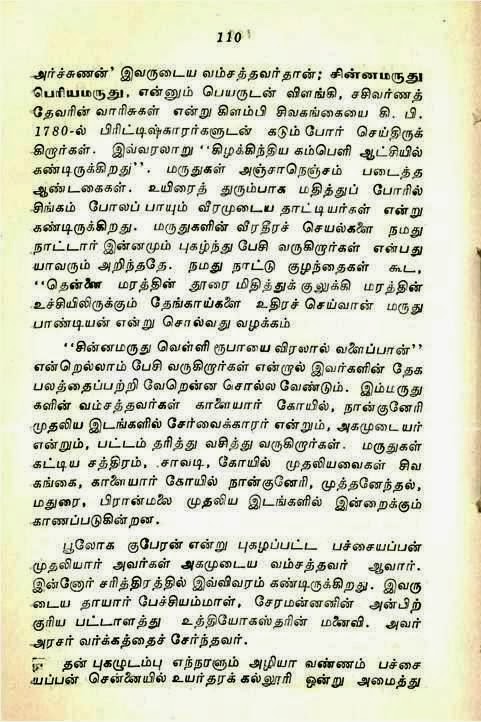 110
அர்ச்சுணன்' இவருடைய வம்சத்தவர்தான்; சின்னமருது
பெரியமருது, என்னும் பெயருடன் விளங்கி, சசிவர்ணத்
தேவரின் வாரிசுகள் என்று கிளம்பி சிவகங்கையை கி. பி.
1780-ல் பிரிட்டிஷ்காரர்களுடன் கடும் போர் செய்திருக்
கிறார்கள். இவ்வரலாறு ‘‘கிழக்கிந்திய கம்பெளி ஆட்சியில்
கண்டிருக்கிறது’’. மருதுகள் அஞ்சாநெஞ்சம் படைத்த
ஆண்டகைகள். உயிரைத் துரும்பாக மதித்துப் போரில்
சிங்கம் போலப் பாயும் வீரமுடைய தாட்டியர்கள் என்று
கண்டிருக்கிறது. மருதுகளின் வீரதீரச் செயல்களை நமது
நாட்டார் இன்னமும் புகழ்ந்து பேசி வருகிறார்கள் என்பது
யாவரும் அறிந்ததே. நமது நாட்டு குழந்தைகள் கூட,
‘‘தென்னை மரத்தின் தூரை மிதித்துக் குலுக்கி மரத்தின்
உச்சியிலிருக்கும் தேங்காய்களை உதிரச் செய்வான் மருது
பாண்டியன் என்று சொல்வது வழக்கம்
‘‘சின்னமருது வெள்ளி ரூபாயை விரலால் வளைப்பான்’’
என்றெல்லாம் பேசி வருகிறார்கள் என்றால் இவர்களின் தேக
பலத்தைப்பற்றி வேறென்ன சொல்ல வேண்டும். இம்மருது
களின் வம்சத்தவர்கள் காளையார் கோயில், நான்குனேரி
முதலிய இடங்களில் சேர்வைக்காரர் என்றும், அகமுடையர்
என்றும், பட்டம் தரித்து வசித்து வருகிறார்கள். மருதுகள்
கட்டிய சத்திரம், சாவடி, கோயில் முதலியவைகள் சிவ
கங்கை, காளையார் கோயில் நான்குனேரி, முத்தனேந்தல்,
மதுரை, பிரான்மலை முதலிய இடங்களில் இன்றைக்கும்
காணப்படுகின்றன.
பூலோக குபேரன் என்று புகழப்பட்ட பச்சையப்பன்
முதலியார் அவர்கள் அகமுடைய வம்சத்தவர் ஆவார்.
இன்னோர் சரித்திரத்தில் இவ்விவரம் கண்டிருக்கிறது. இவரு
டைய தாயார் பேச்சியம்மாள், சேரமன்னனின் அன்பிற்
குரிய பட்டாளத்து உத்தியோகஸ்தரின் மனைவி. அவர்
அரசர் வர்க்கத்தைச் சேர்ந்தவர்.
தன் புகழுடம்பு எந்நாளும் அழியா வண்ணம் பச்சை
யப்பன் சென்னையில் உயர்தரக் கல்லூரி ஒன்று அமைத்து